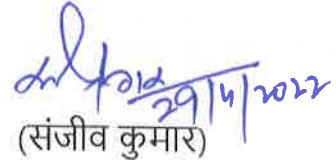 29/4/2022
(संजीव कुमार)